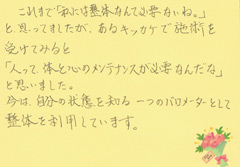 これまで「私には整体なんて必要ないわ。」
と思ってましたが、あるキッカケで施術を
受けてみると
「人って、体と心のメンテナンスが必要なんだな」
と思いました。
今は、自分の状態を知る一つのバロメーターとして
整体を利用しています。